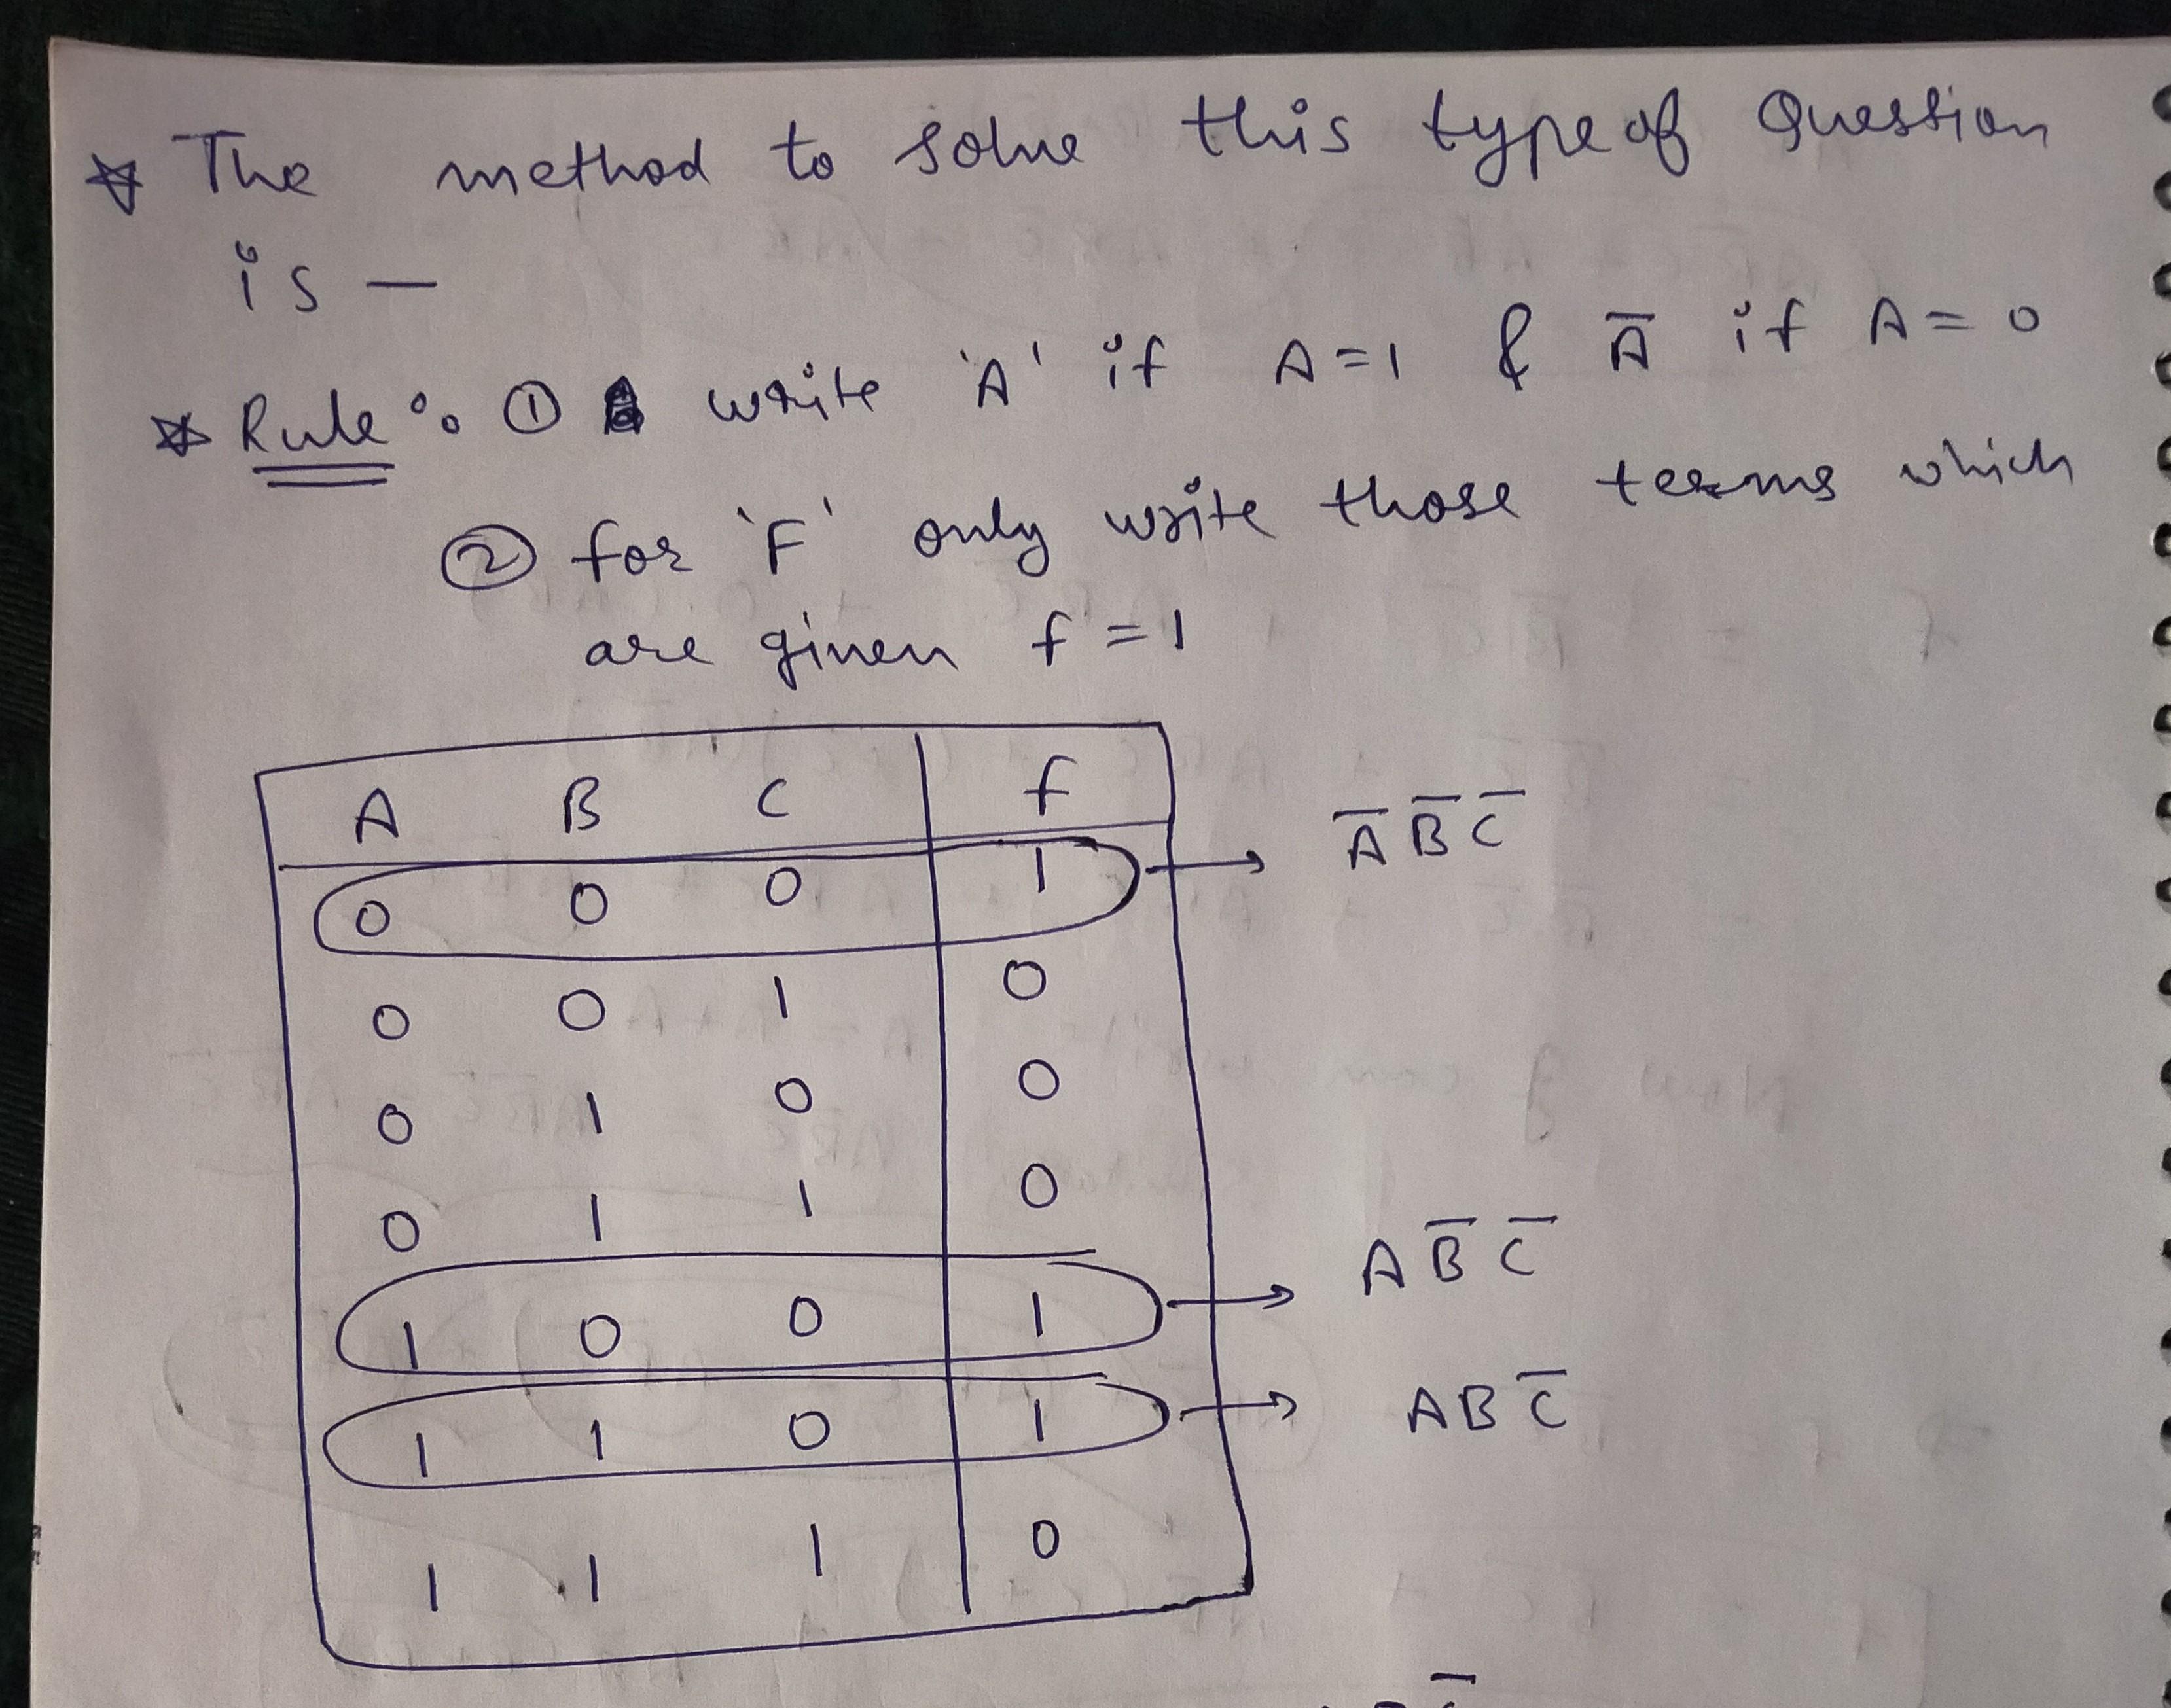 ☆ The method to solve this type of Question
is —
☆ Rule : ① write 'A' if A=1 & A̅ if A=0
② for 'F' only write those terms which
are given f=1
A B C f
0 0 0 1 → A̅ B̅ C̅
0 0 1 0
0 1 0 0
0 1 1 0
1 0 0 1 → A B̅ C̅
1 1 0 1 → A B C̅
1 1 1 0